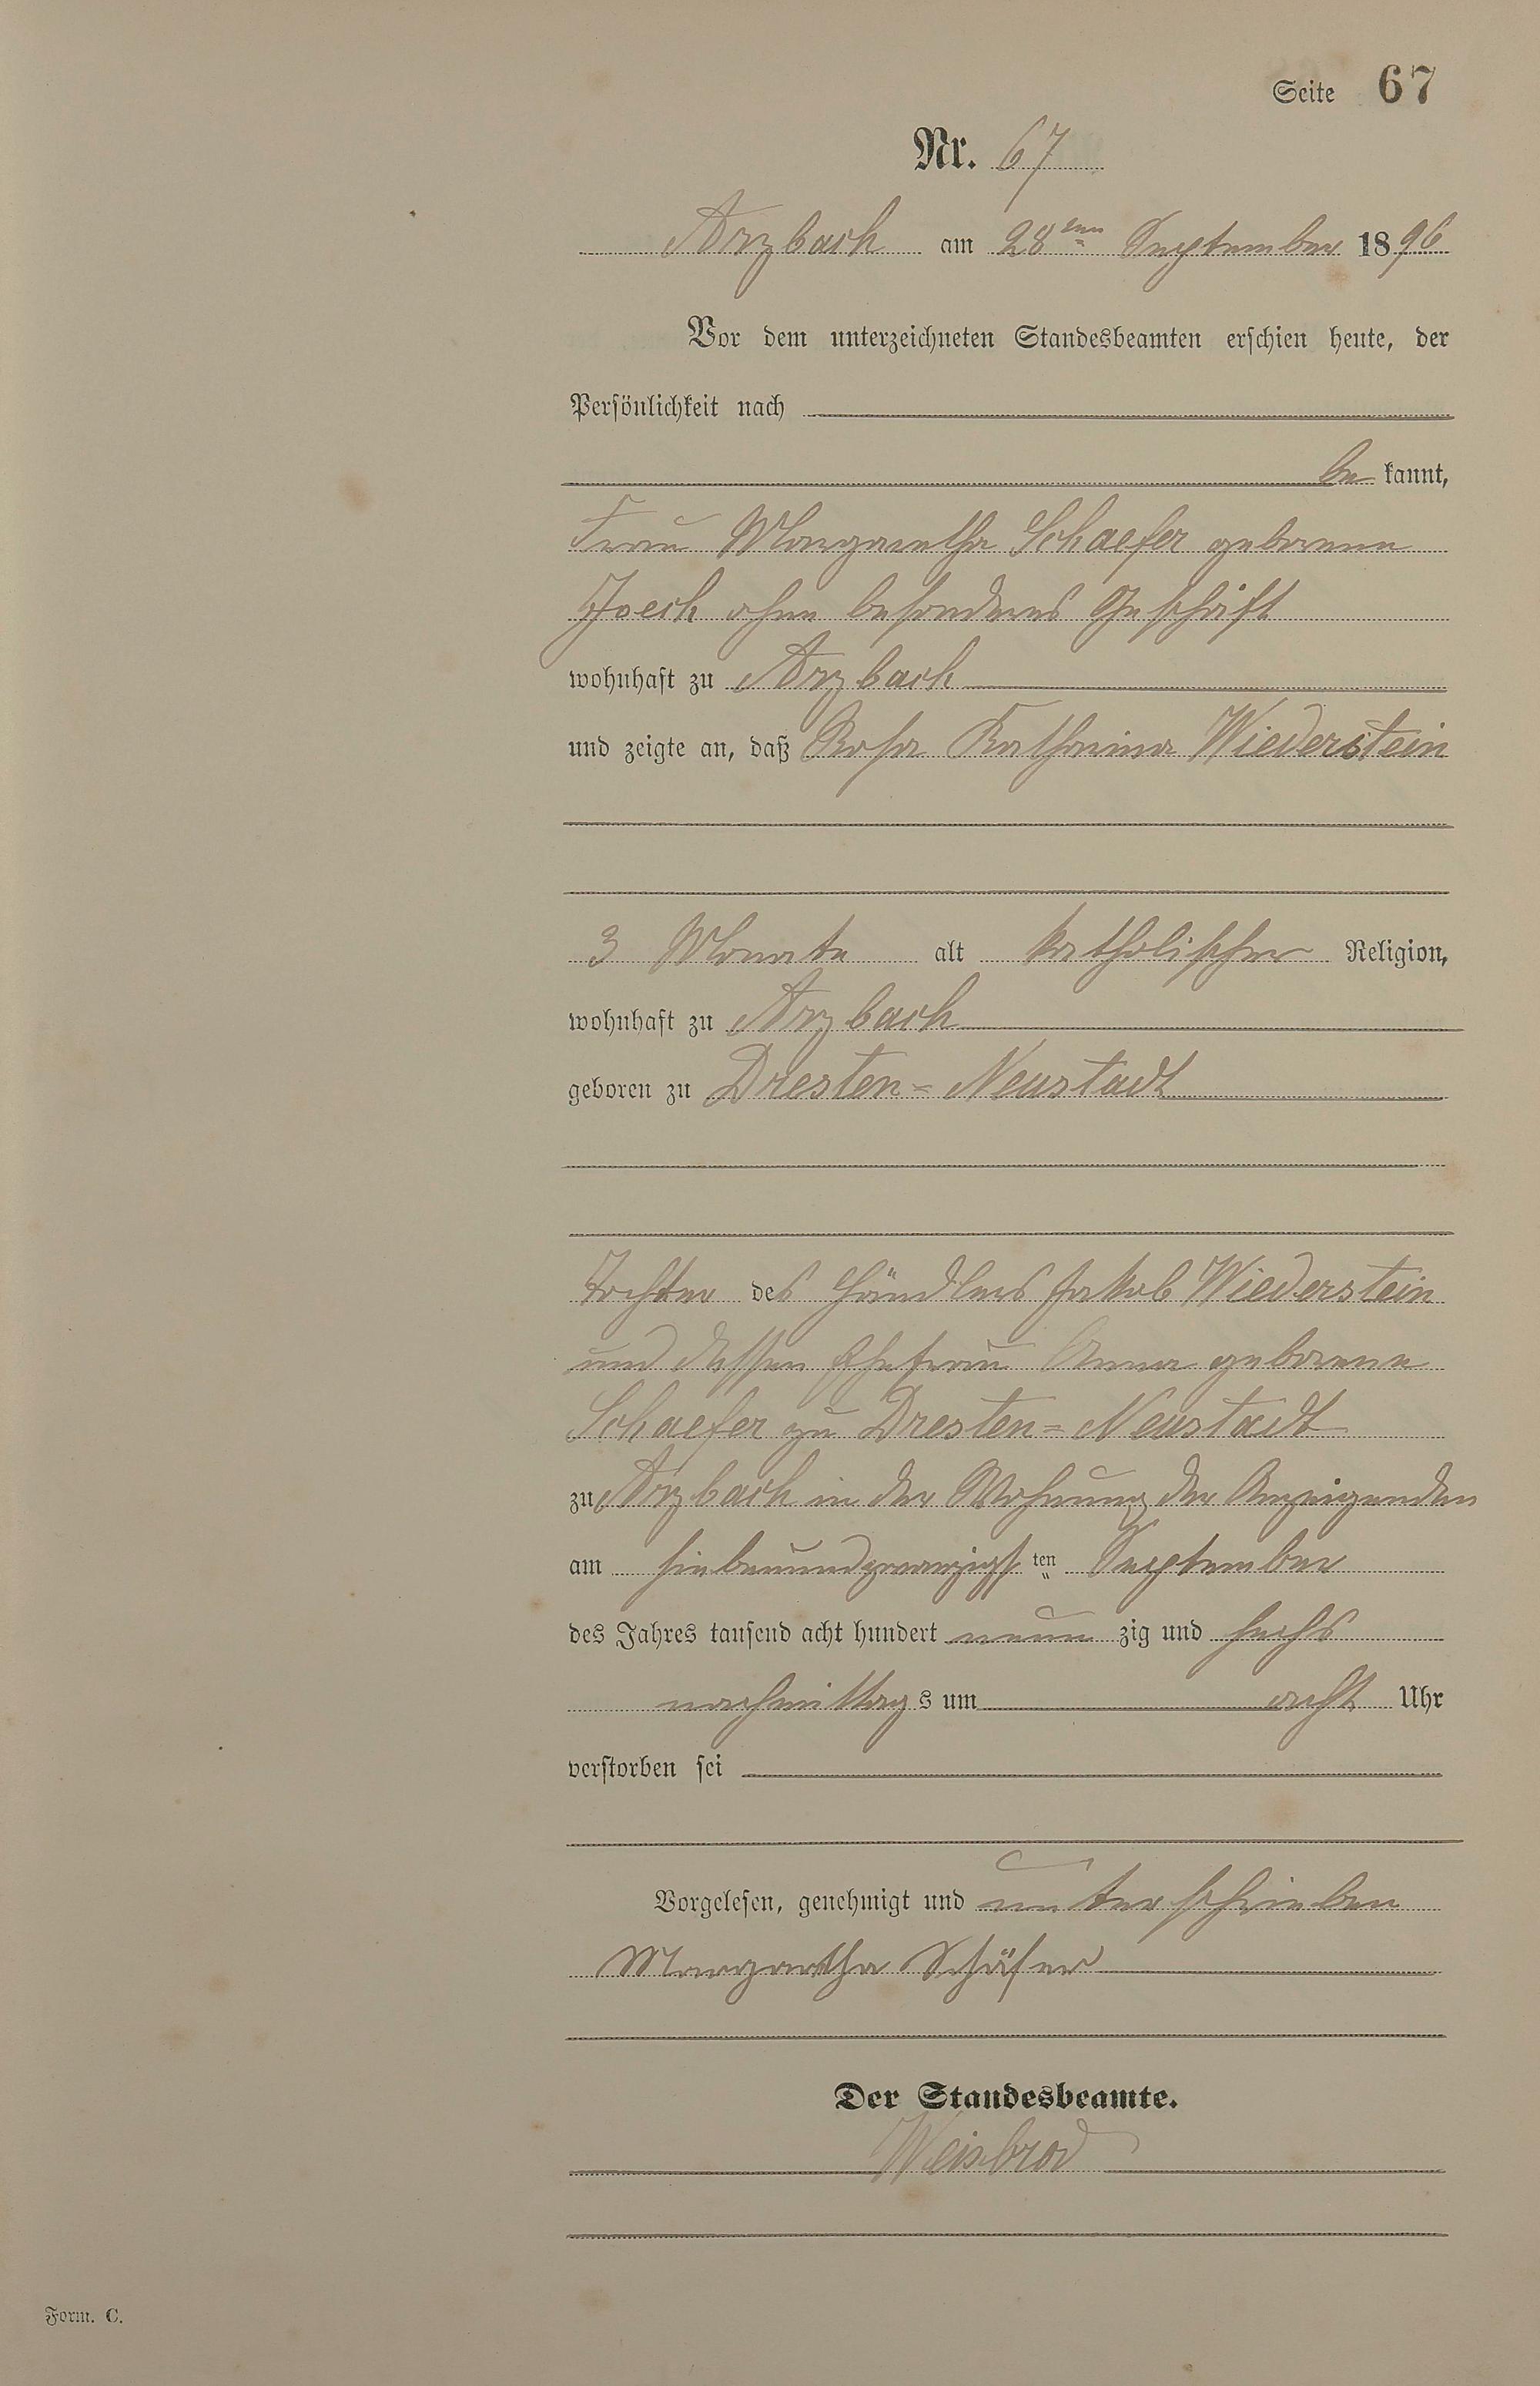 Seite 67
Nr. 67
Arzbach am 28ten September 1896
Vor dem unterzeichneten Standesbeamten erschien heute, der
Persönlichkeit nach
be kannt,
Frau Margaretha Schaefer geborene
Joech ohne besonderes Geschäft
wohnhaft zu Arzbach
und zeigte an, daß Rosa Katharina Wiederstein
3 Monate alt katholischer Religion,
wohnhaft zu Arzbach
geboren zu Dresten=Neustadt
Tochter des Händlers Jakob Wiederstein
und dessen Ehefrau Anna geborene
Schaefer zu Dresten=Neustadt
zu Arzbach in der Wohnung der Anzeigenden
am siebenundzwanzigsten September
des Jahres tausend acht hundert neun zig und sechs
nachmittags um acht Uhr
verstorben sei
Vorgelesen, genehmigt und unterschrieben
Margartha Schäfer
Der Standesbeamte.
Weisbrod
Form. C.